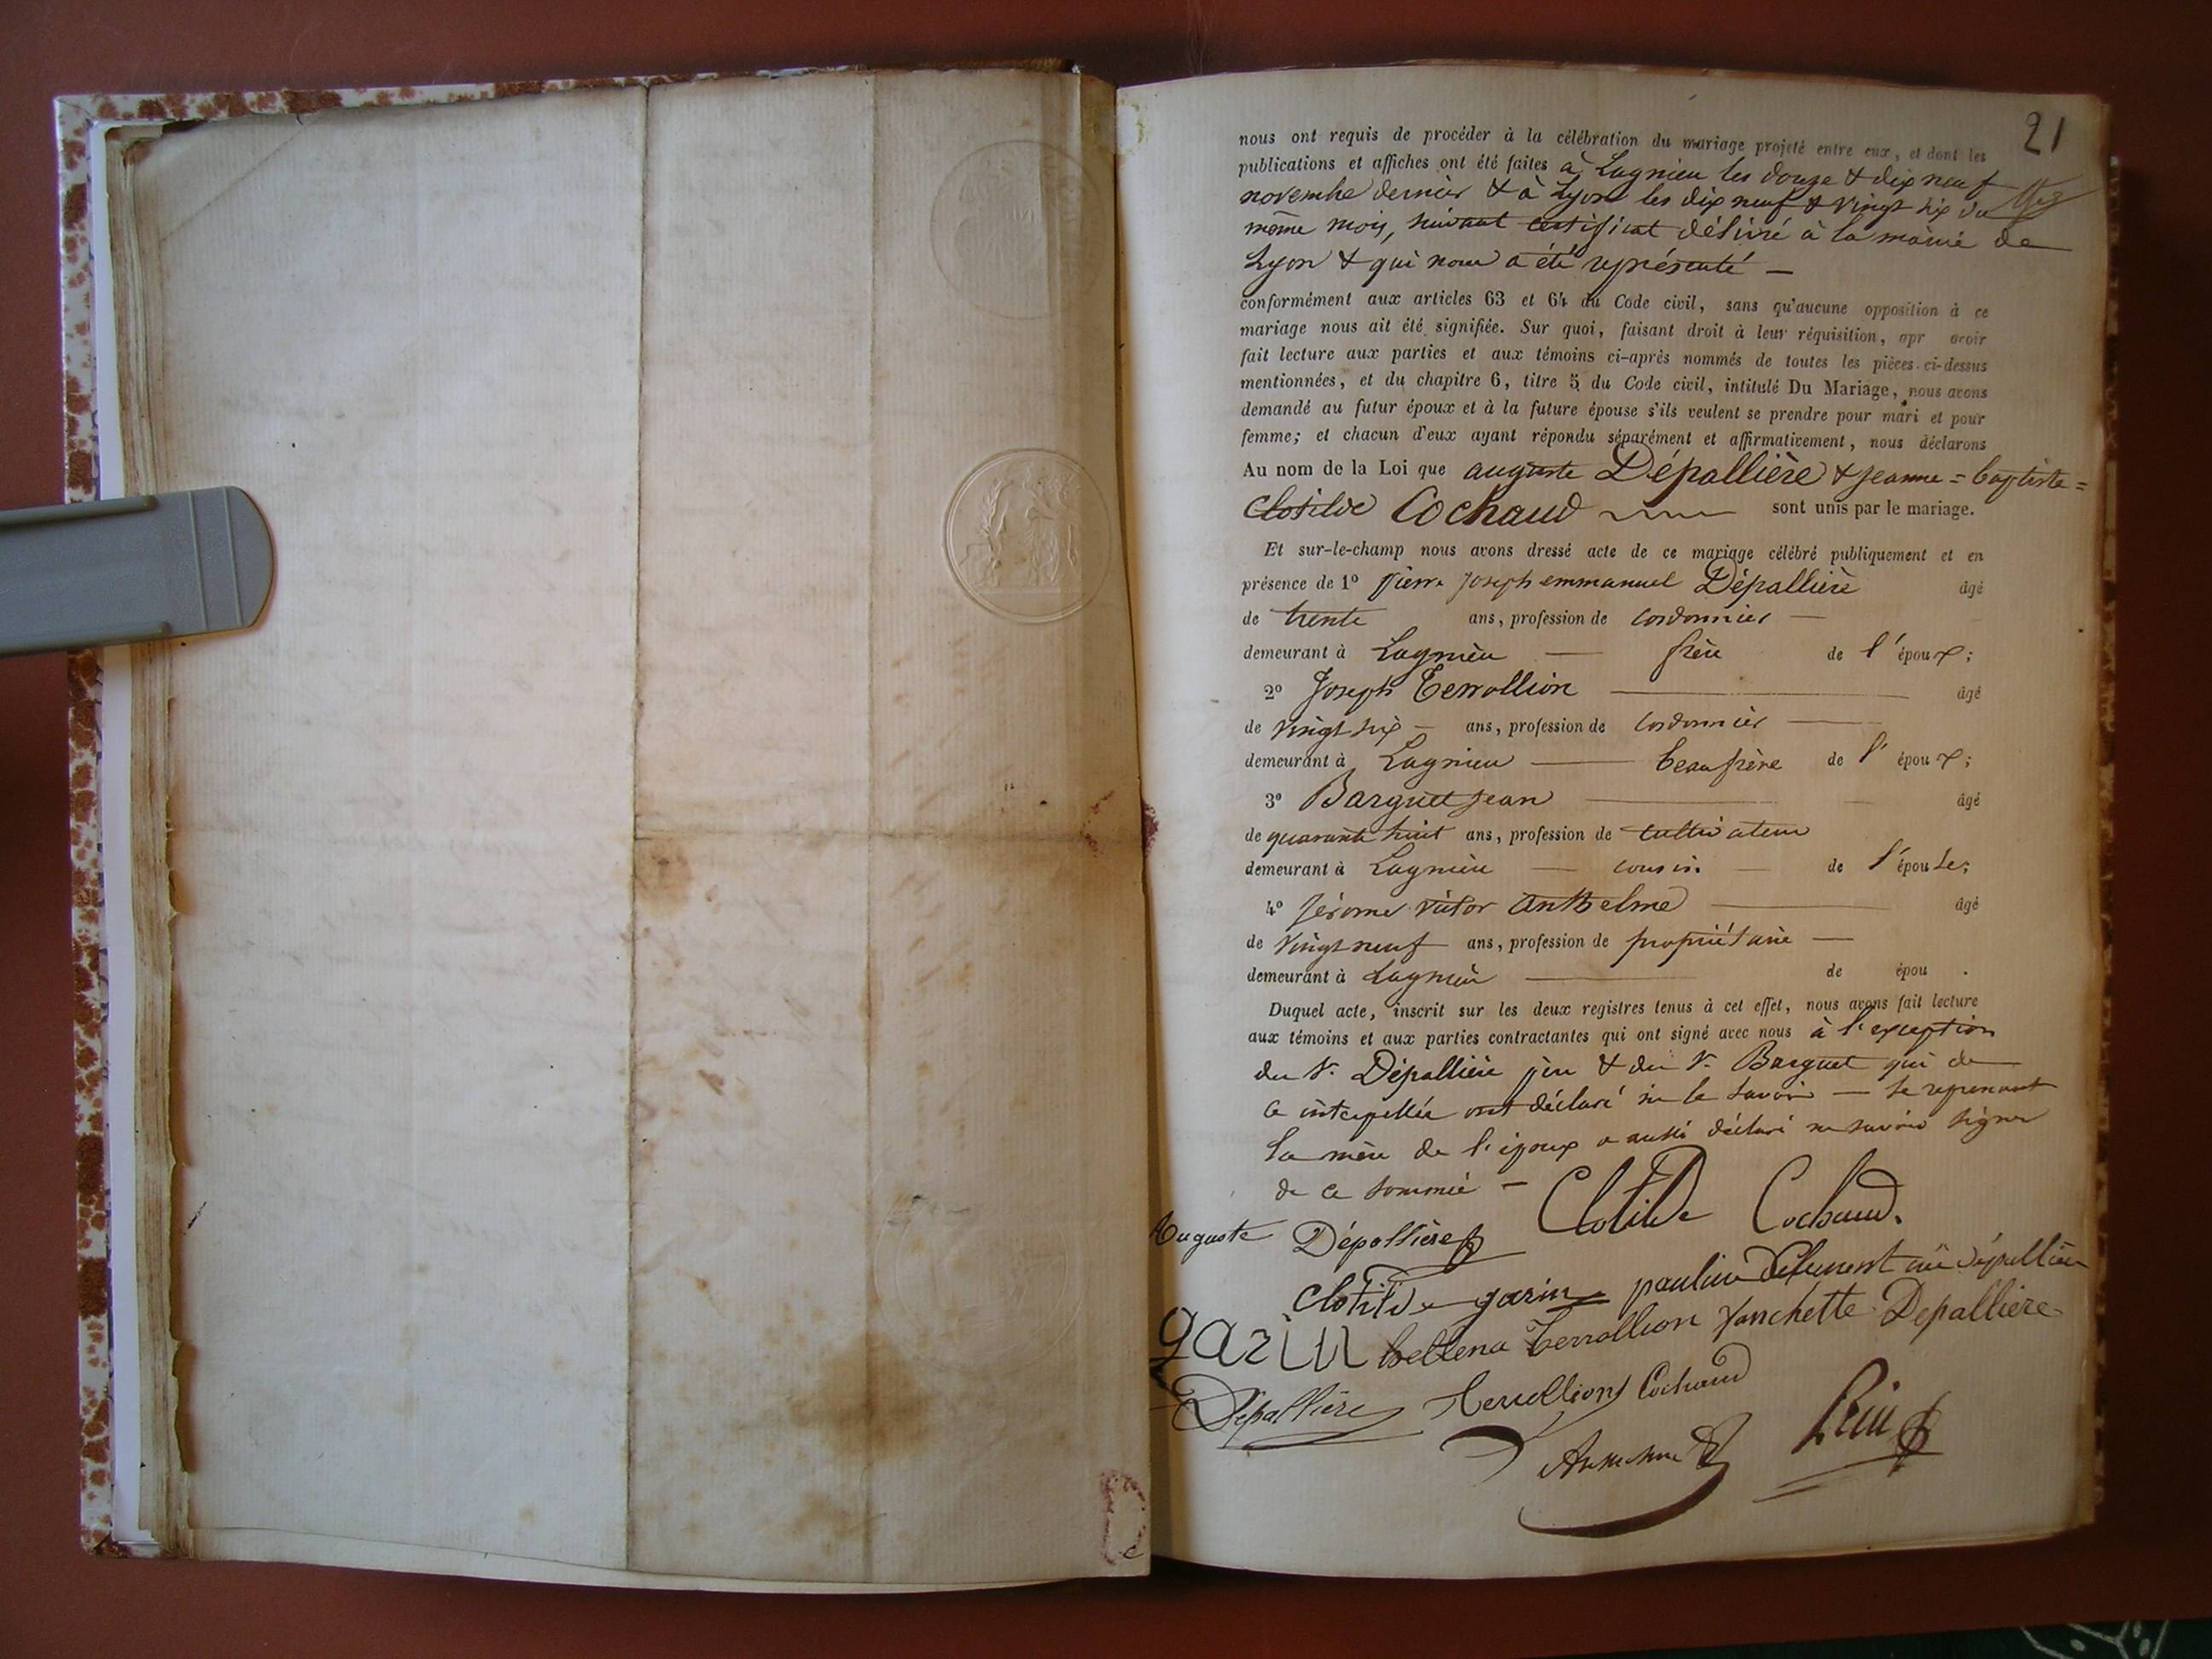 21
nous ont requis de procéder à la célébration du mariage projeté entre eux, et dont les
publications et affiches ont été faites à Lagnieu les douze & dix neuf
novembre dernier & à Lyon les dix neuf & vingt six du
même mois, suivant certificat délivré à la mairie de
Lyon & qui nous a été représenté —
conformément aux articles 63 et 64 du Code civil, sans qu'aucune opposition à ce
mariage nous ait été signifiée. Sur quoi, faisant droit à leur réquisition, apr avoir
fait lecture aux parties et aux témoins ci-après nommés de toutes les pièces ci-dessus
mentionnées, et du chapitre 6, titre 5 du Code civil, intitulé Du Mariage, nous avons
demandé au futur époux et à la future épouse s'ils veulent se prendre pour mari et pour
femme; et chacun d'eux ayant répondu séparément et affirmativement, nous déclarons
Au nom de la Loi que auguste Dépallière & Jeanne = baptiste =
Clotilde Cochaud sont unis par le mariage.
Et sur-le-champ nous avons dressé acte de ce mariage célébré publiquement et en
présence de 1º pierre joseph emmanuel Dépallière âgé
de trente ans, profession de cordonnier —
demeurant à Lagnieu — frère de l'époux;
2º Joseph Terrollion — âgé
de vingt six — ans, profession de cordonnier —
demeurant à Lagnieu — beau frère de l'époux;
3º Barguet Jean — âgé
de quarante huit ans, profession de cultivateur
demeurant à Lagnieu — cousin — de l'épouse;
4º Jérome victor anthelme — âgé
de vingt neuf ans, profession de propriétaire —
demeurant à Lagnieu — de épou .
Duquel acte, inscrit sur les deux registres tenus à cet effet, nous avons fait lecture
aux témoins et aux parties contractantes qui ont signé avec nous à l'exception
du S. Dépallière père & du S. Barguet qui de
ce interpellés ont déclaré ne le savoir — se reprenant
la mère de l'époux a aussi déclaré ne savoir signer
de ce sommée —
Clotilde Cochaud.
Auguste Dépallière
Clotilde garin pauline née dépallière
garin hellena Terrollion fanchette Depalliere
Dépallière Terrollion Cochaud